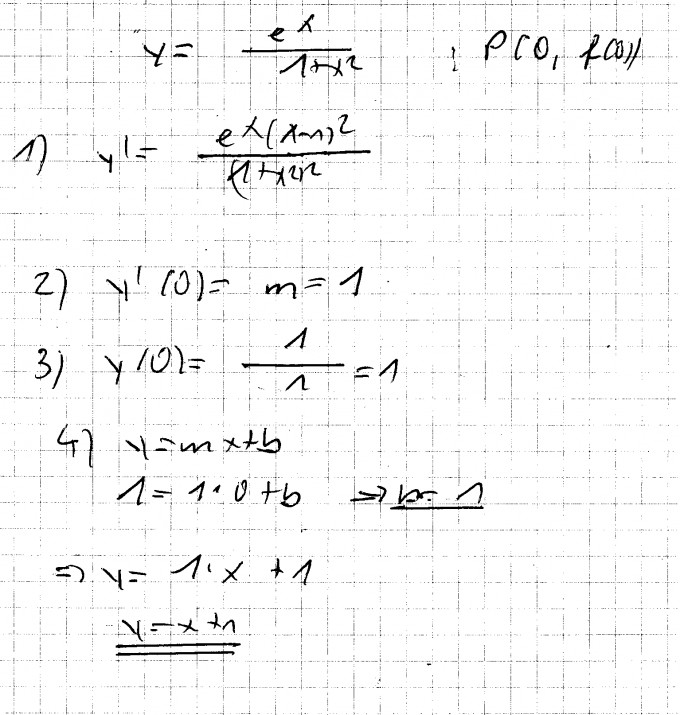 y = e^x / (1+x^2) ; P(0, f(0))
1) y' = e^x(x-1)^2 / (1+x^2)^2
2) y'(0) = m = 1
3) y(0) = 1/1 = 1
4) y = mx+b
1 = 1·0+b => b = 1
=> y = 1·x + 1
y = x+1